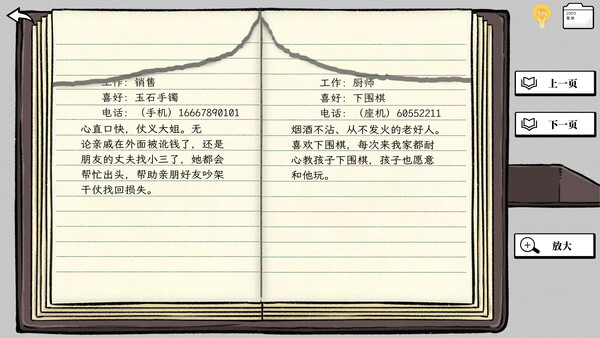 工作：销售
喜好：玉石手镯
电话：（手机）16667890101
心直口快，仗义大姐。无
论亲戚在外面被讹钱了，还是
朋友的丈夫找小三了，她都会
帮忙出头，帮助亲朋好友吵架
干仗找回损失。
工作：厨师
喜好：下围棋
电话：（座机）60552211
烟酒不沾、从不发火的老好人。
喜欢下围棋，每次来我家都耐
心教孩子下围棋，孩子也愿意
和他玩。
上一页
下一页
放大